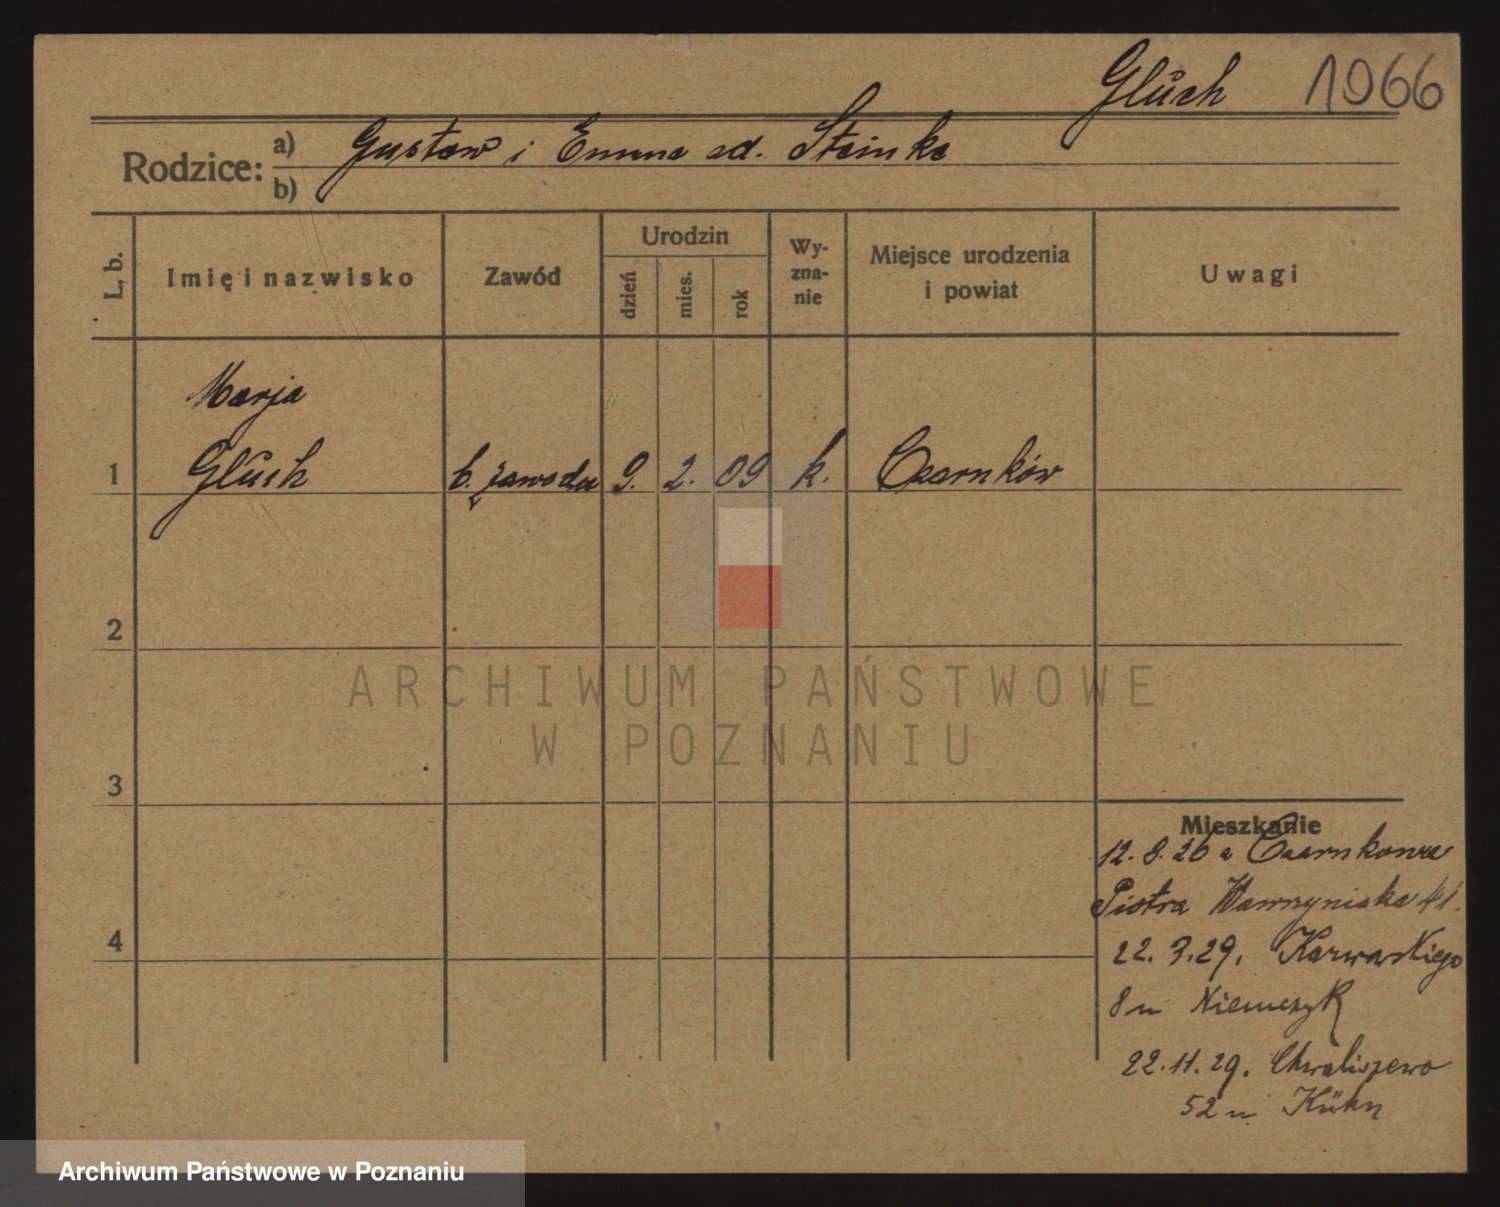 Glüch 1966
Rodzice: a) Gustaw i Emma od. Steinke
b)
L. b.
Imię i nazwisko
Zawód
Urodzin
dzień
mies.
rok
Wy-
zna-
nie
Miejsce urodzenia
i powiat
Uwagi
Marja
1 Glüch b. zawodu 9. 2. 09 k. Czarnków
2
3
4
Mieszkanie
12. 8. 26 z Czarnkowa
Piotra Wawrzyniaka 41.
22. 3. 29. Karwowskiego
8 u Niemczyk
22. 11. 29. Chwaliszewo
52 u Kühn
ARCHIWUM PAŃSTWOWE
W POZNANIU
Archiwum Państwowe w Poznaniu